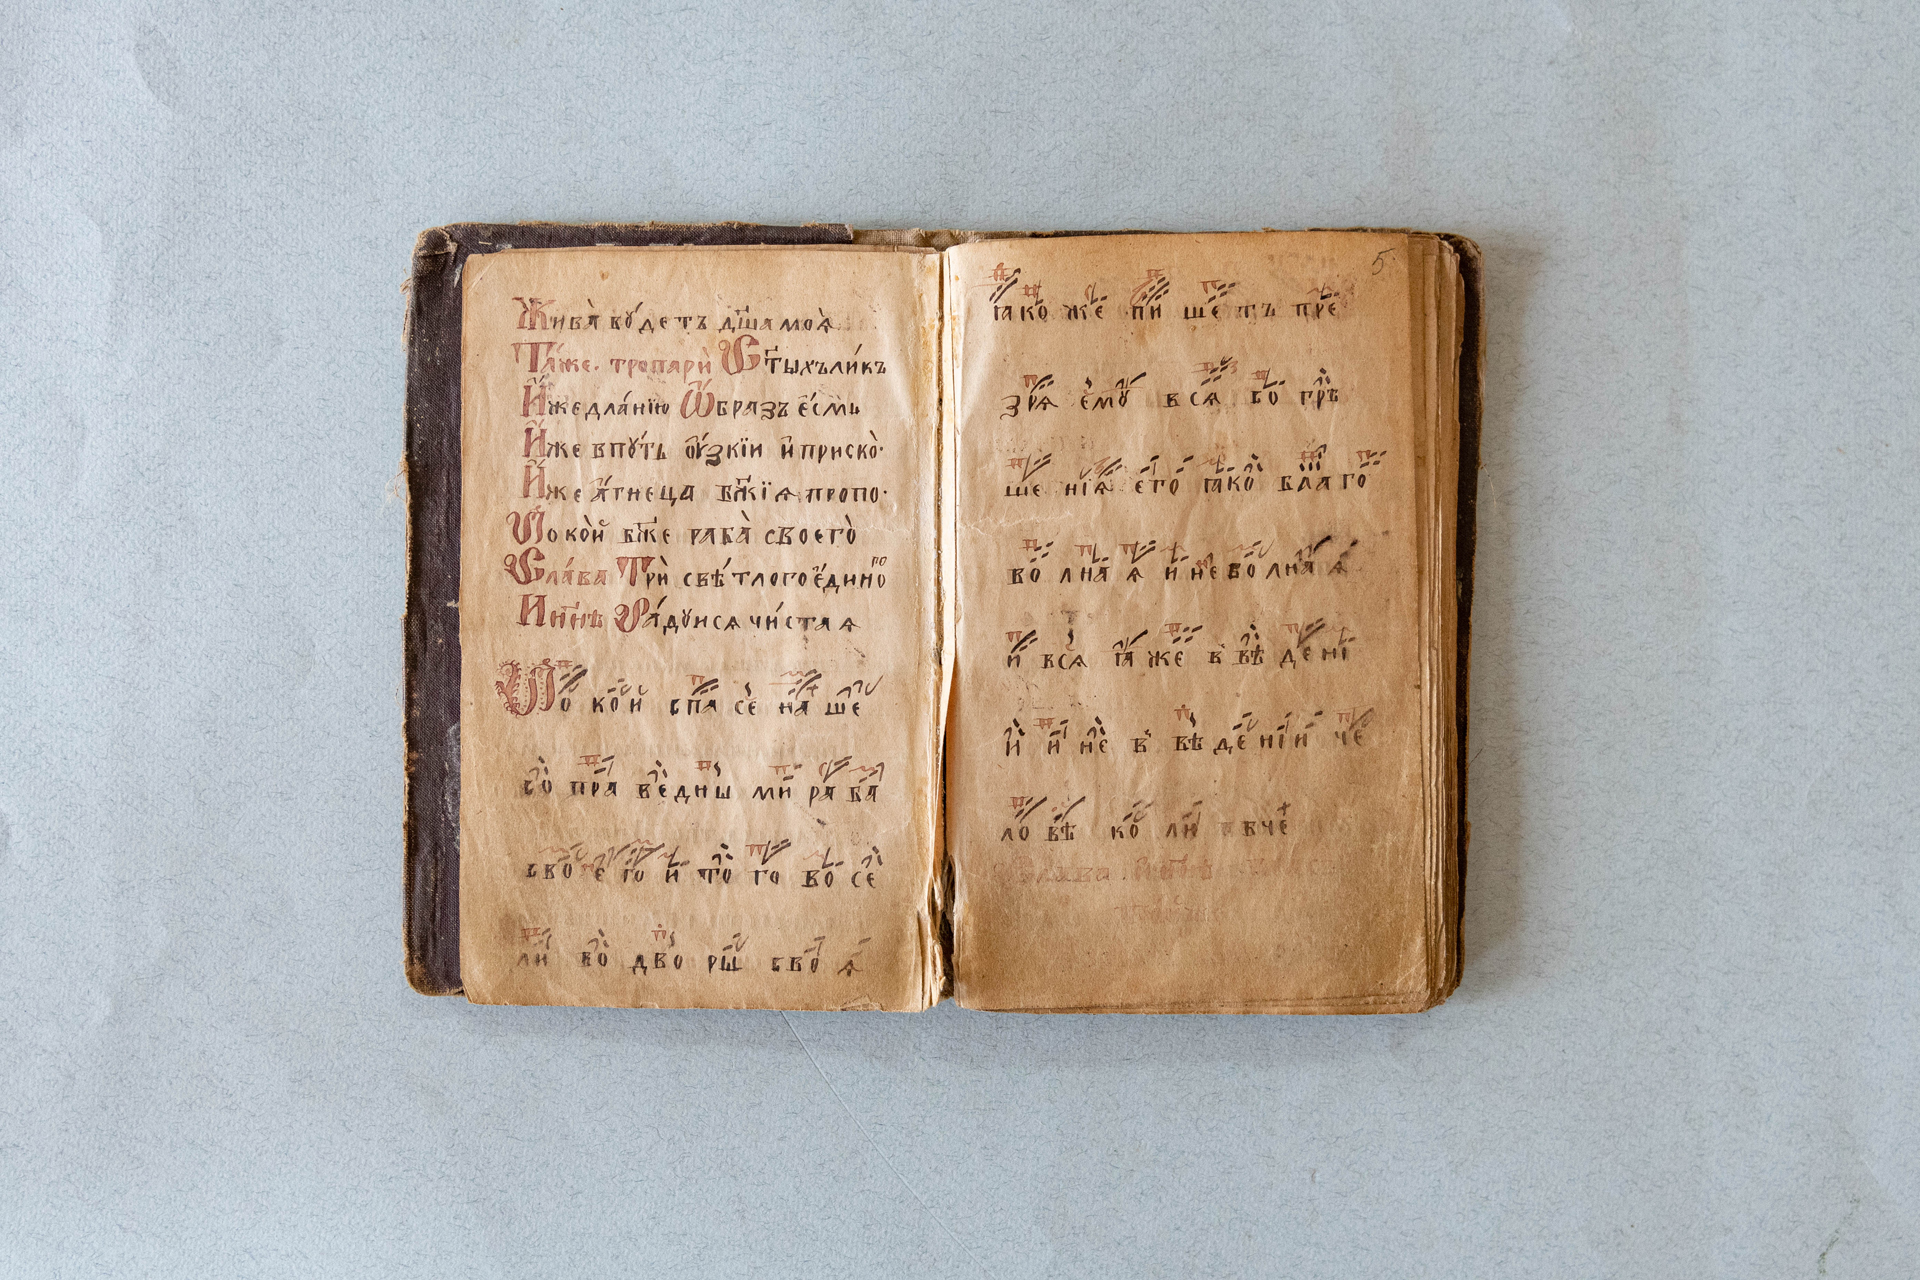 Жива̀ бꙋ́детъ дш҃а моѧ̀
Та́же. тропарѝ Ст҃ыхъ ли́къ
И҆́же дла́нїю ѡ҆́бразъ є҆́смь
И҆́же в пꙋ́ть ᲂу҆́зкїи и҆ приско̀·
И҆́же а҆́гнеца бж҃їѧ пропо·
Поко́й бж҃е раба̀ своего̀
Сла́ва Трѝ свѣ́тлого є҆ди́но
И нн҃ѣ Ра́дꙋисѧ чи́стаѧ
По ко́и спа́ се́ на ше
со пра ве дны ми ра ба
сво е го и то го во се
ли во дво ры сво ѧ
5
ꙗко же пи ше тъ пре
зрѧ ємꙋ всѧ бо грѣ
ше нїѧ єго ꙗко бла го
во лнаѧ и не во лнаѧ
и всѧ ꙗже в вѣ де нї
и и не в вѣ де нїи че
ло вѣ ко лю бче
Слава И нн҃ѣ